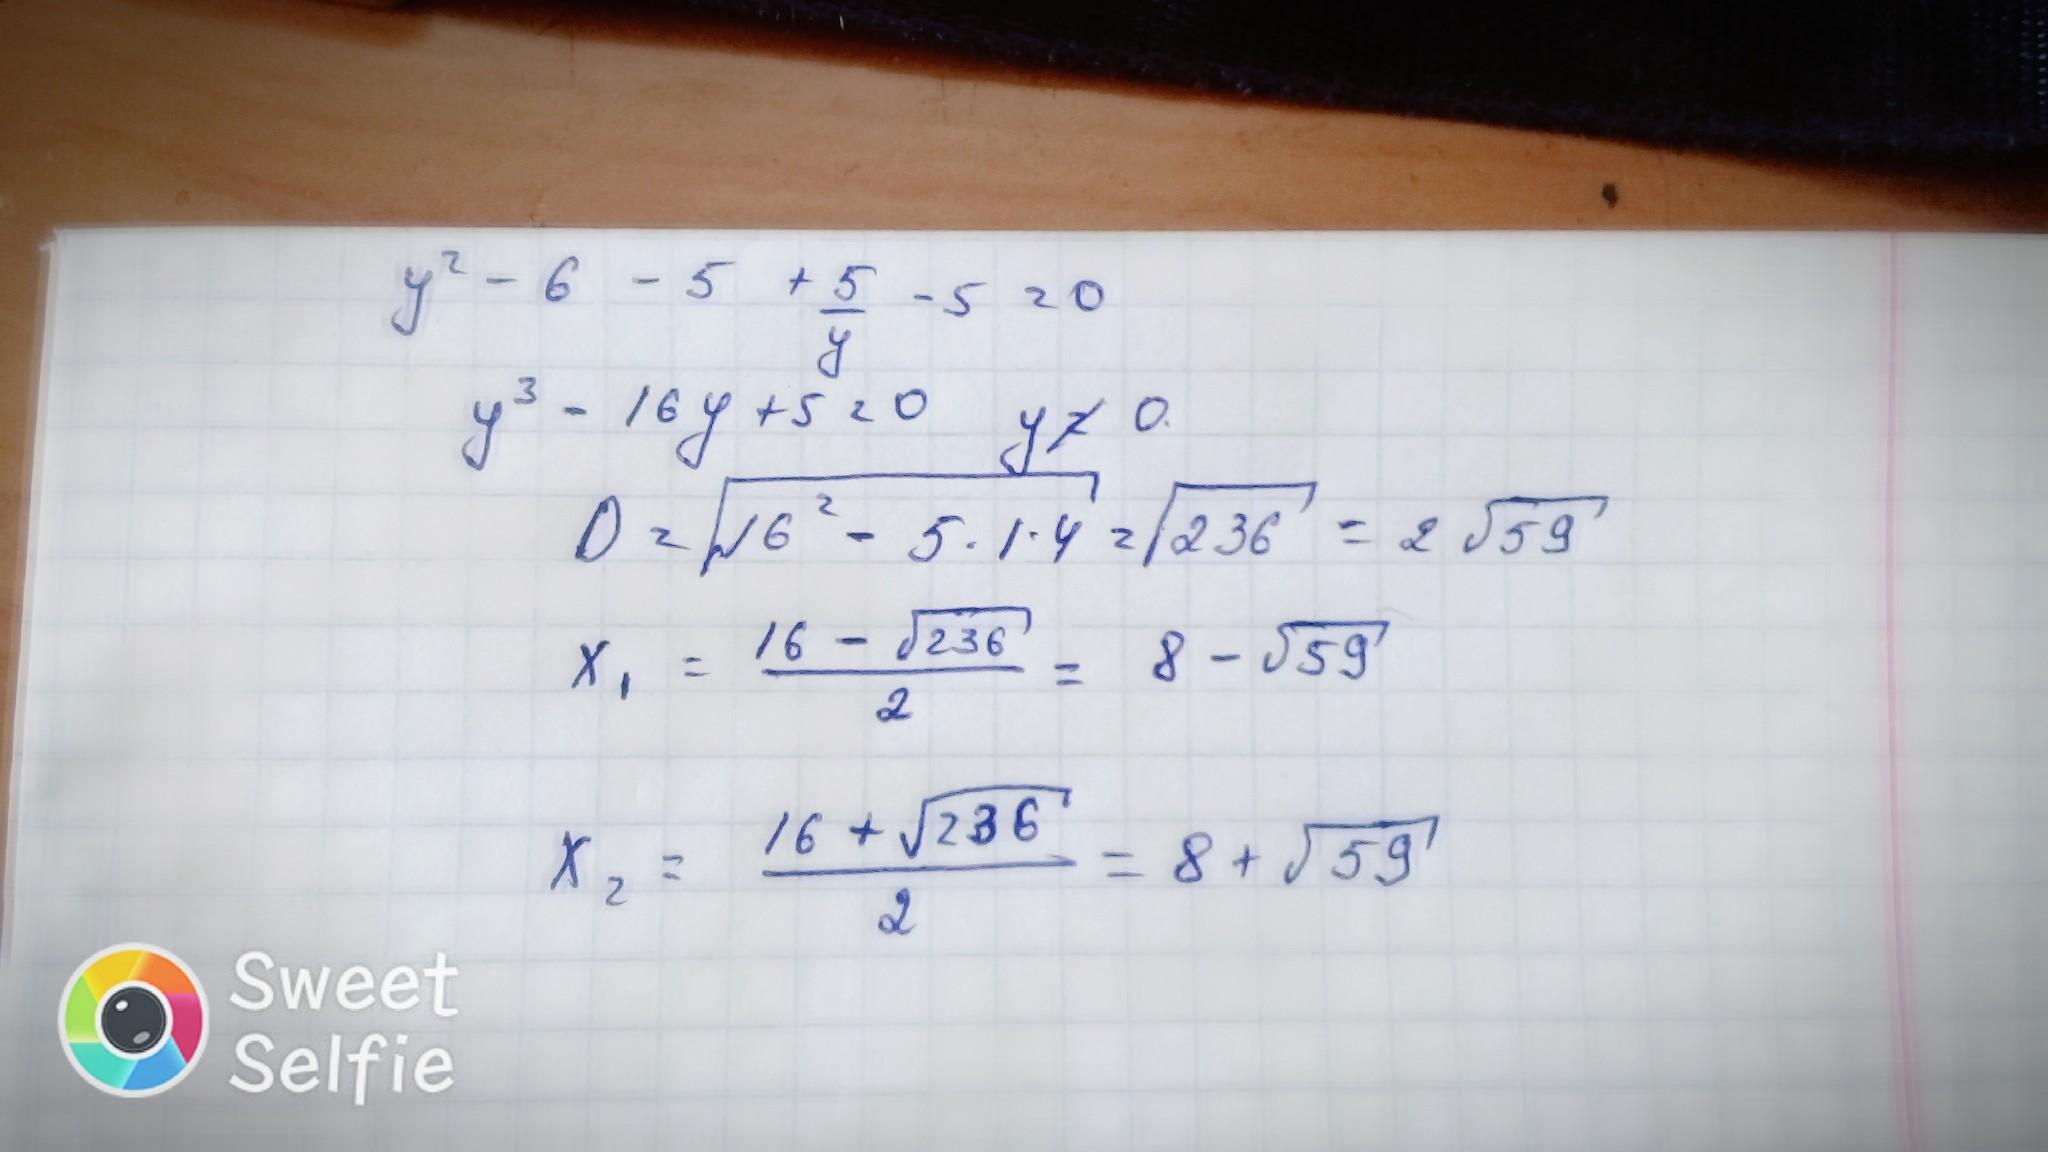 y² - 6 - 5 + 5/y - 5 = 0
y³ - 16y + 5 = 0 y ≠ 0.
D = √(16² - 5·1·4) = √236 = 2√59
x₁ = (16 - √236)/2 = 8 - √59
x₂ = (16 + √236)/2 = 8 + √59
Sweet
Selfie